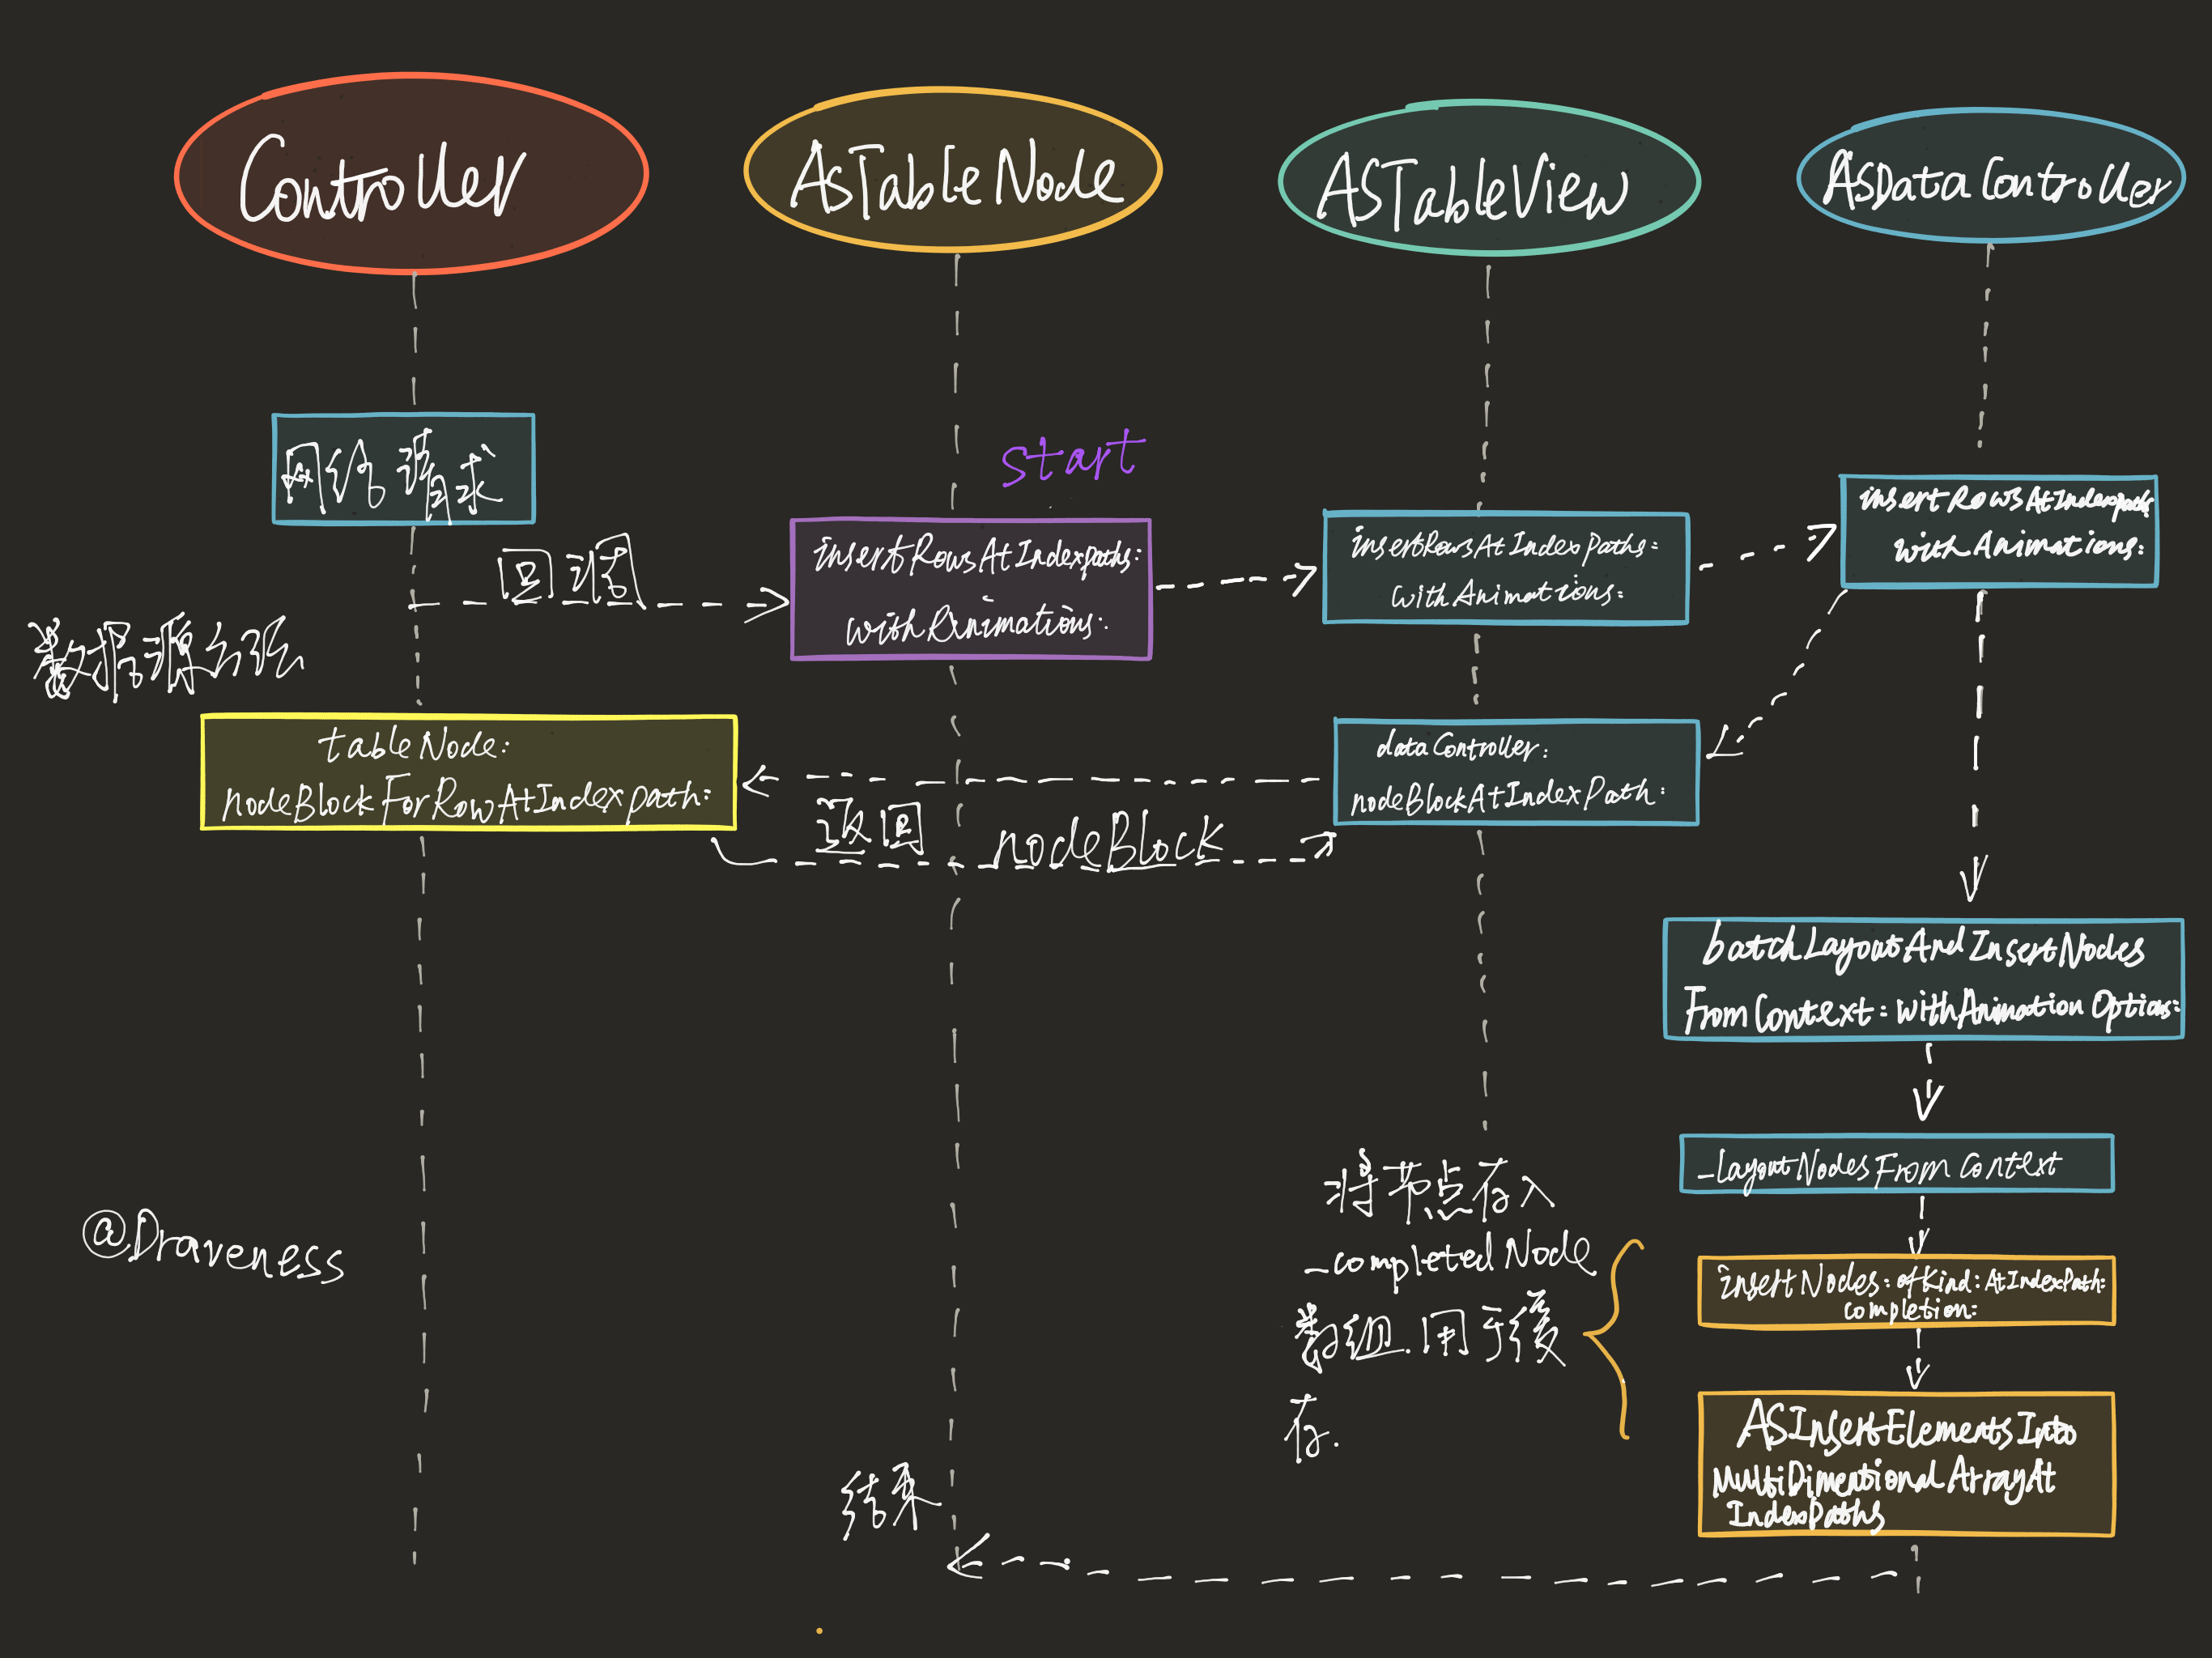 Controller
ASTableNode
ASTableView
ASDataController
网络请求
start
insertRowsAtIndexpaths:
withAnimations:
insertRowsAtIndexPaths:
withAnimations:
insertRowsAtIndexpaths
withAnimations:
回调
数据源方法
tableNode:
nodeBlockForRowAtIndexpath:
dataController:
nodeBlockAtIndexPath:
返回 nodeBlock
batchLayoutAndInsertNodes
FromContext: withAnimationOptions:
_layoutNodesFromContext
将节点存入
_completedNode
数组.用于缓
存.
insertNodes:ofKind:AtIndexPath:
completion:
ASInsertElementsInto
MultiDimentionalArrayAt
IndexPaths
@Draveness
结束